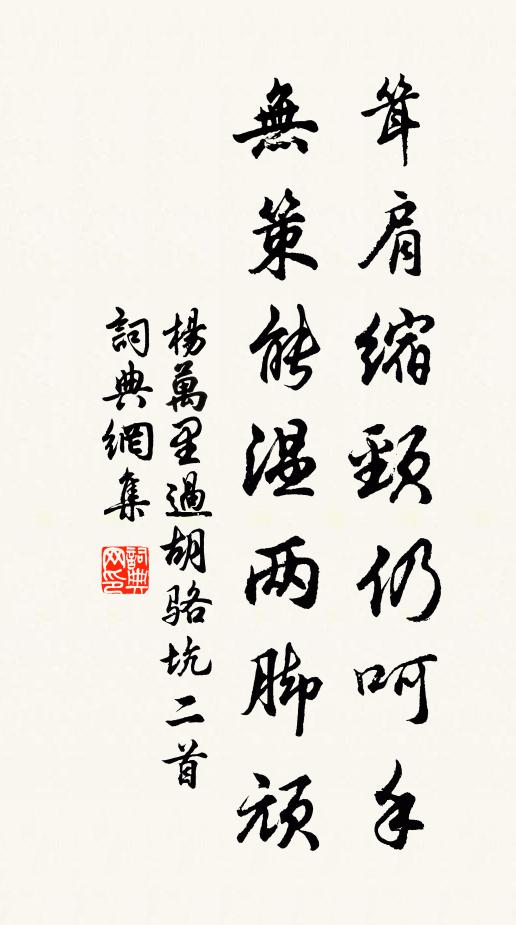 聳肩縮頸仍呵手
無策能温两脚頑
楊萬里過胡骆坑二首
詞典網集
詞典网印